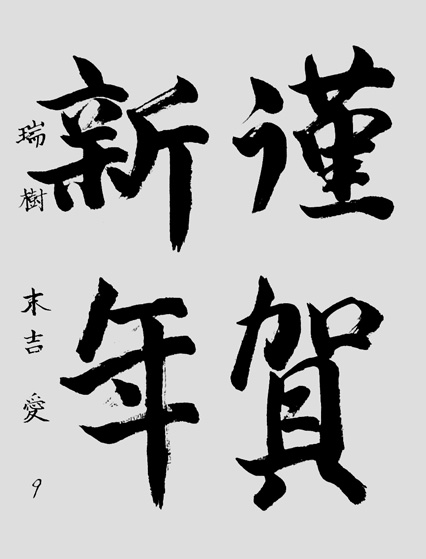 謹賀
新年
瑞樹 末吉 愛 9